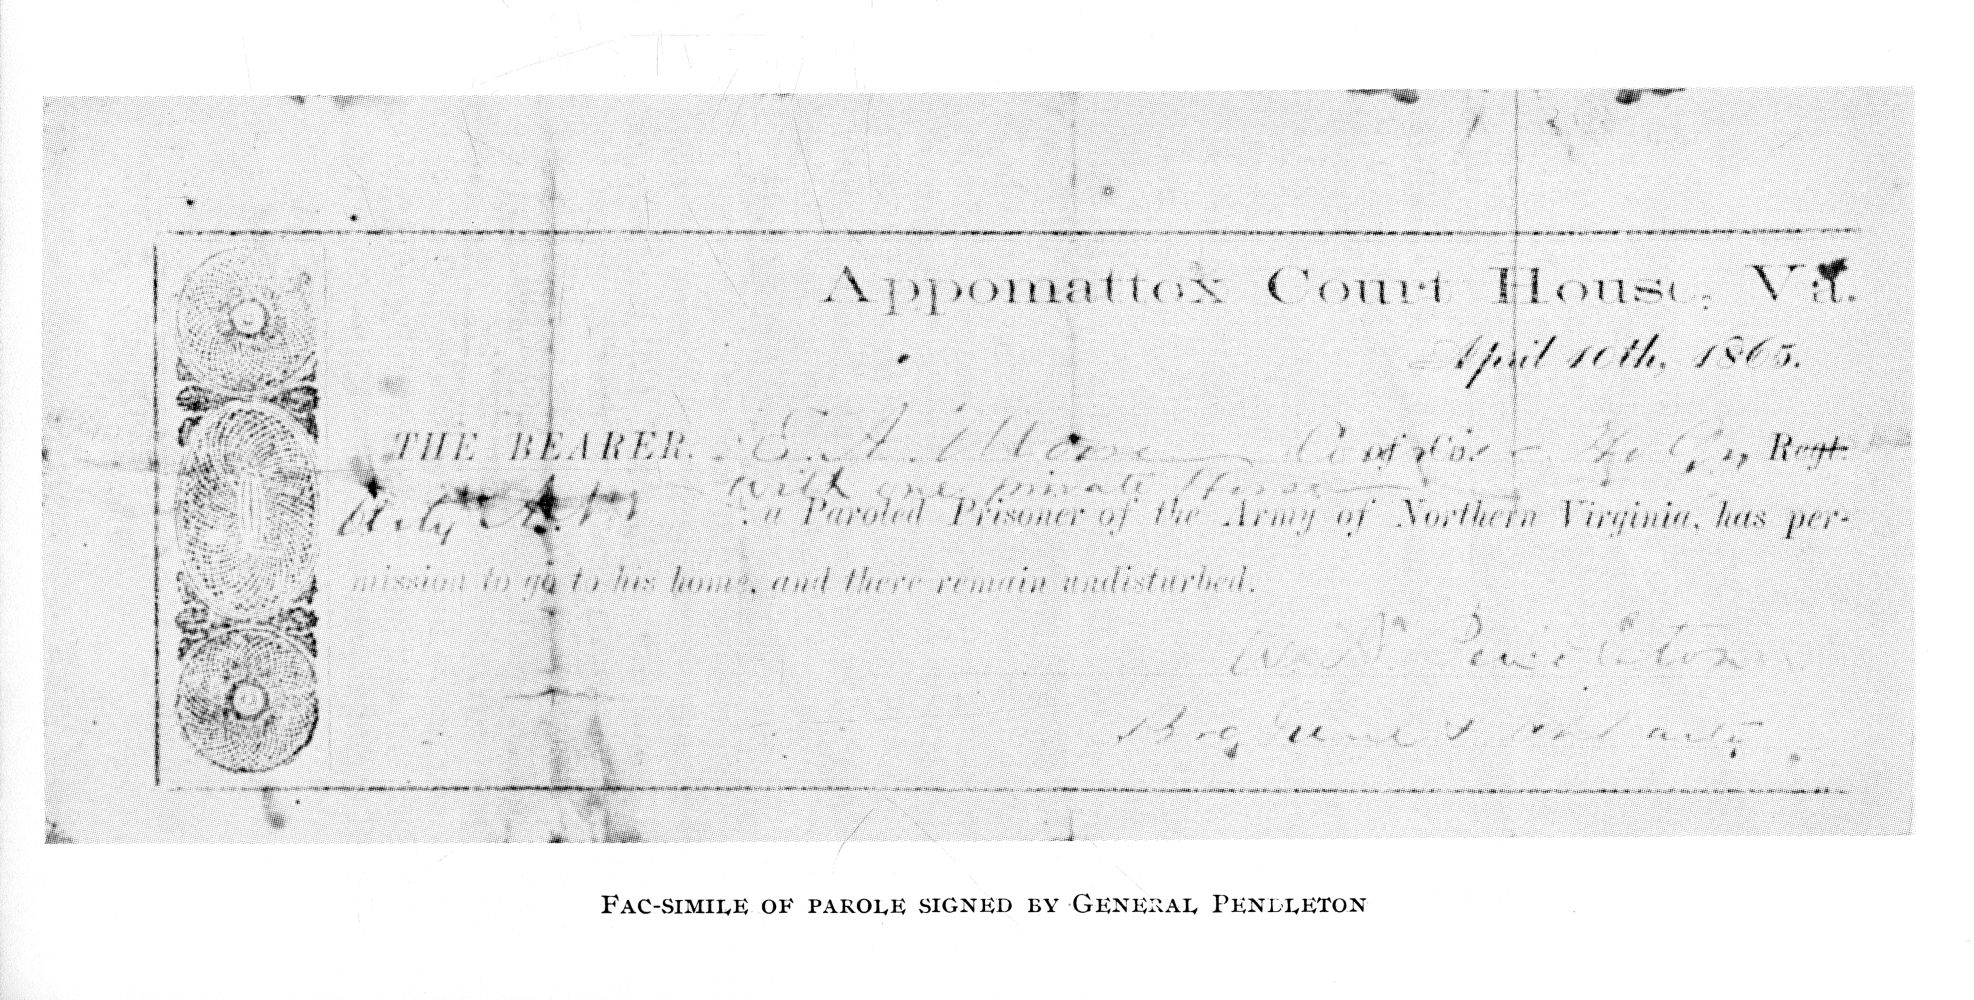 Appomattox Court House, Va.
April 10th, 1865.
THE BEARER, E. A. Moore of Co. Regt.
with one private Horse
Arty A. N. V. a Paroled Prisoner of the Army of Northern Virginia, has per-
mission to go to his home, and there remain undisturbed.
W. N. Pendleton
Brig Genl & arty
FAC-SIMILE OF PAROLE SIGNED BY GENERAL PENDLETON